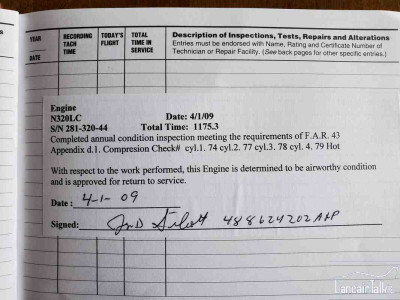 YEAR
DATE
RECORDING TACH TIME
TODAY'S FLIGHT
TOTAL TIME IN SERVICE
Description of Inspections, Tests, Repairs and Alterations
Entries must be endorsed with Name, Rating and Certificate Number of
Technician or Repair Facility. (See back pages for other specific entries.)
Engine
N320LC Date: 4/1/09
S/N 281-320-44 Total Time: 1175.3
Completed annual condition inspection meeting the requirements of F.A.R. 43
Appendix d.1. Compresion Check# cyl.1. 74 cyl.2. 77 cyl.3. 78 cyl. 4. 79 Hot
With respect to the work performed, this Engine is determined to be airworthy condition
and is approved for return to service.
Date : 4-1-09
Signed: 488624202 A&P
LancairTalks